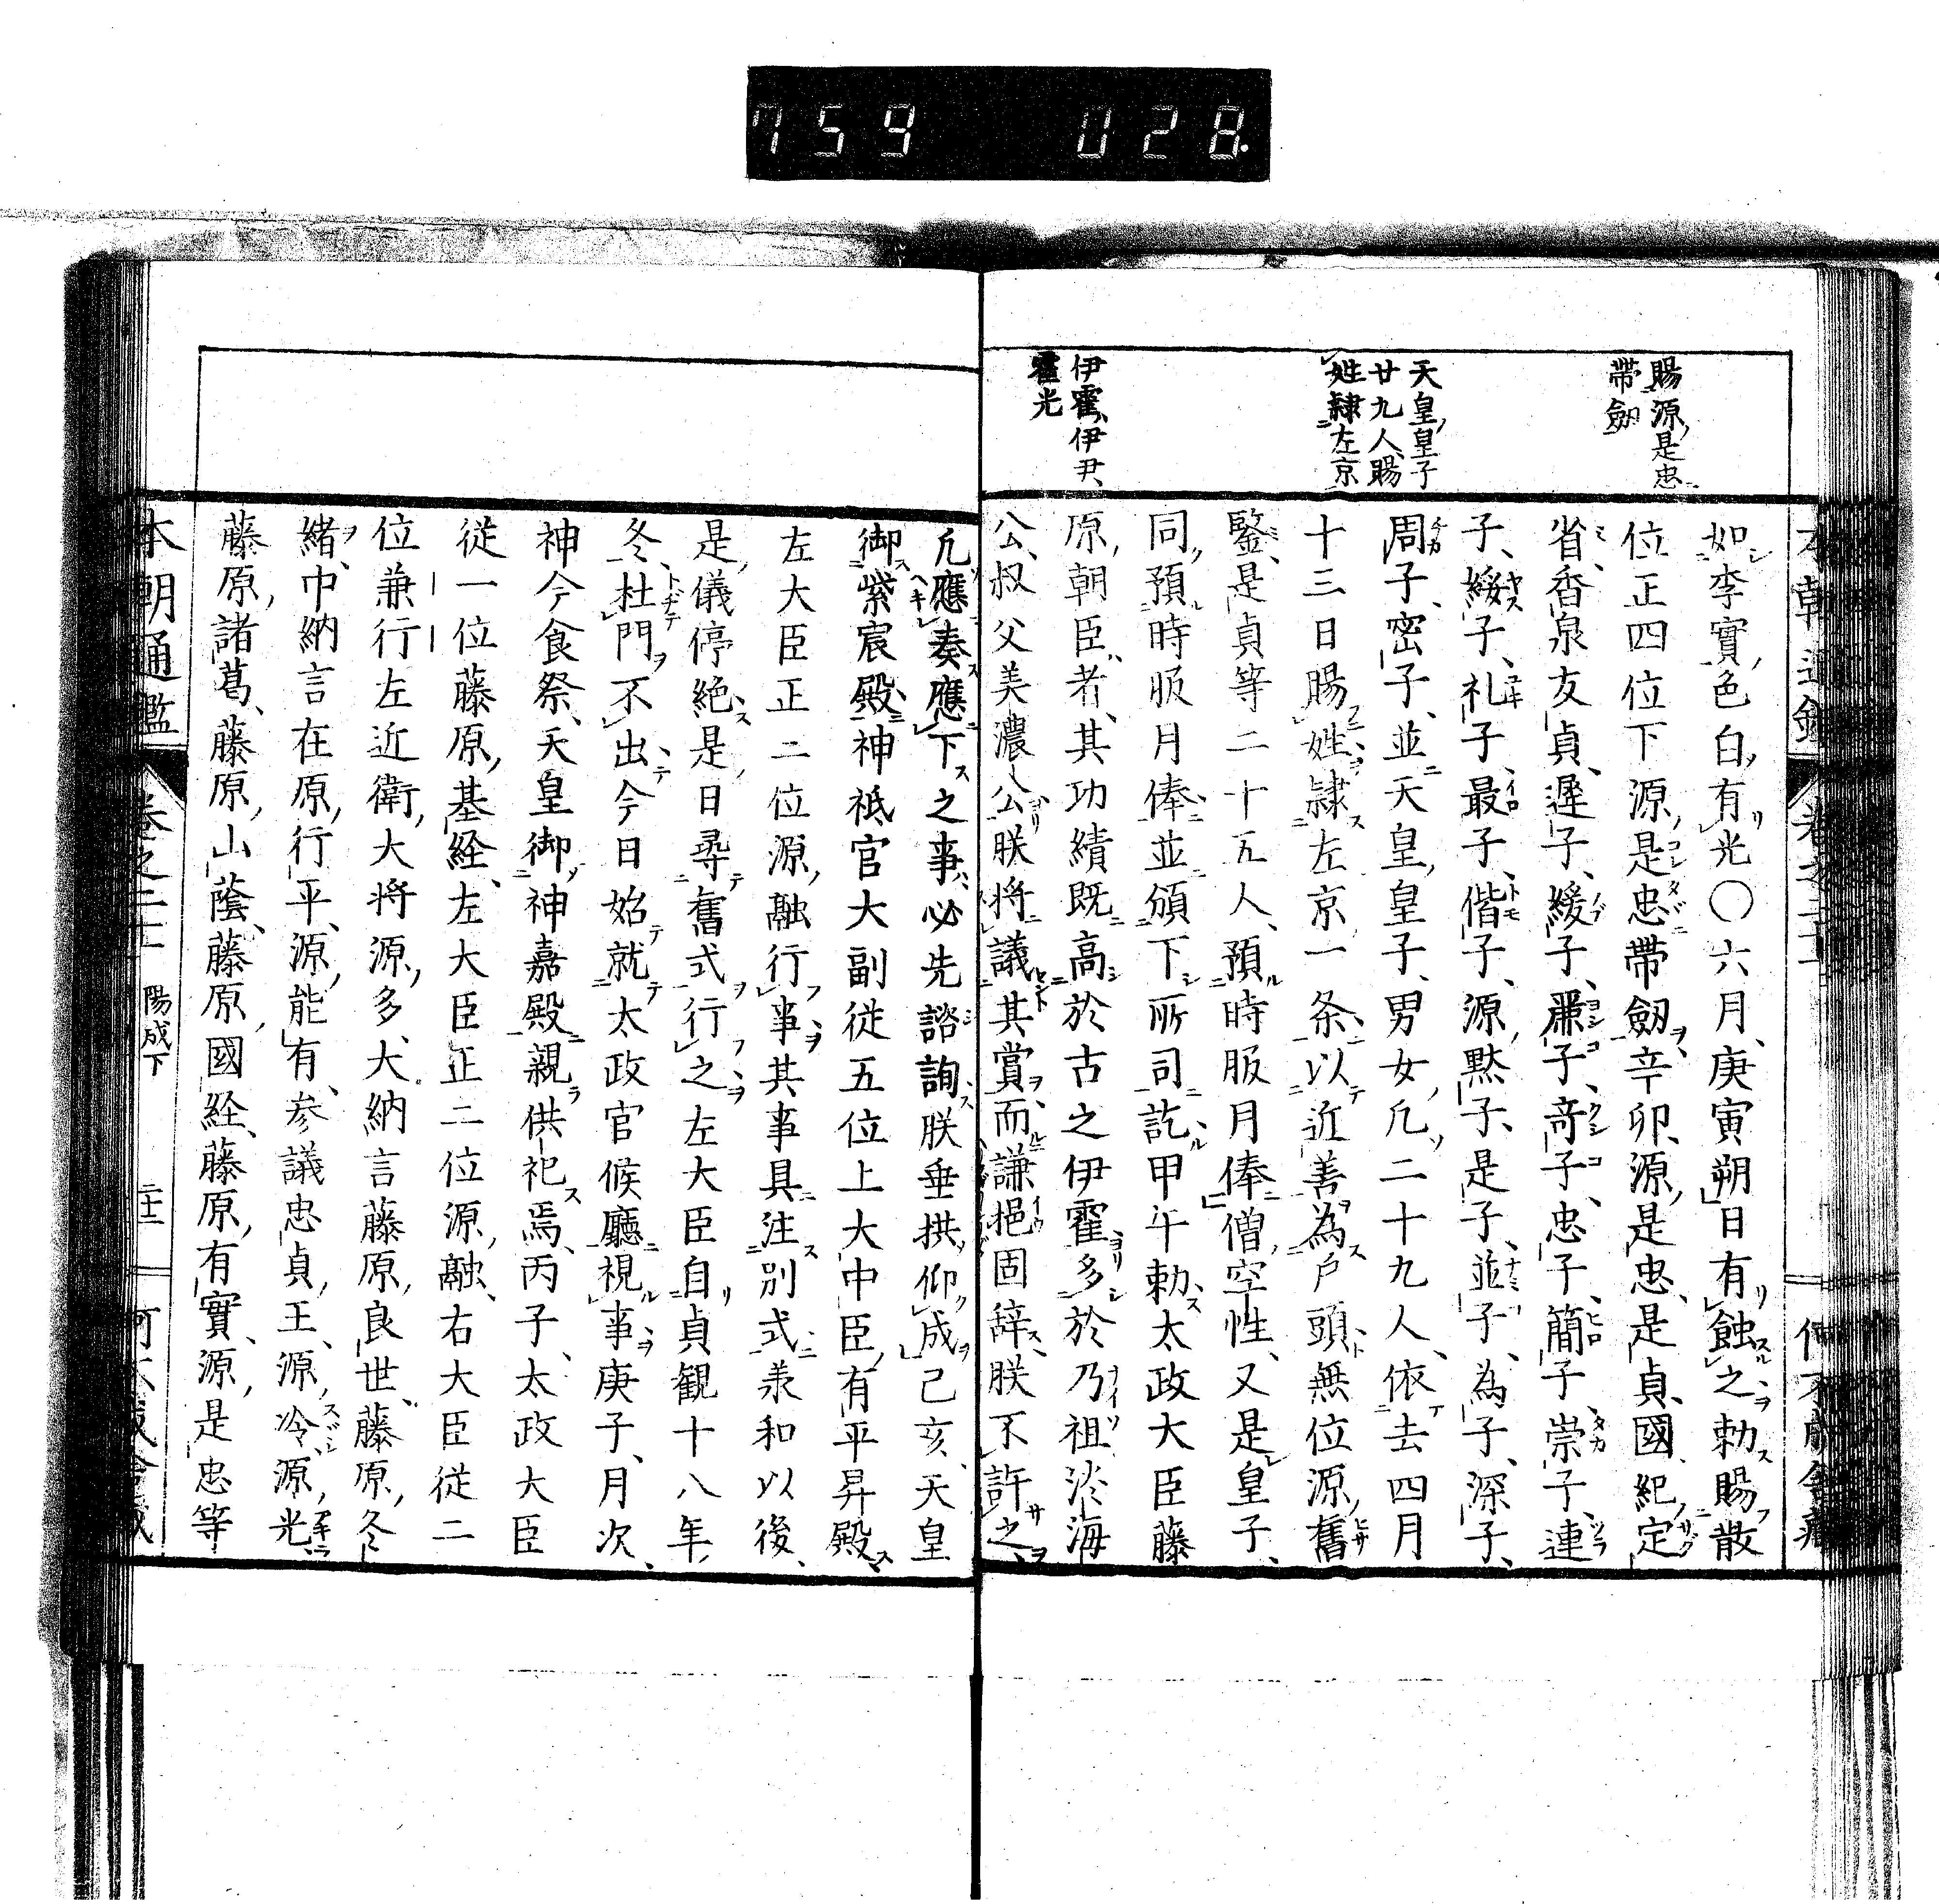 759 028.
賜源是忠
帶劔
天皇皇子
廿九人賜
姓隷左京
伊霍伊尹
霍光
如李實色白有光〇六月庚寅朔日有蝕之勅賜散
位正四位下源是忠帶劔辛卯源是忠是貞國紀定
省香泉友貞遅子緩子麗子奇子忠子簡子崇子連
子綏子礼子最子偕子源黙子是子並子為子深子
周子密子並天皇皇子男女凢二十九人依去四月
十三日賜姓隷左京一条以近善為戸頭無位源舊
鑒是貞等二十五人預時服月俸僧空性又是皇子
同預時服月俸並頒下所司訖甲午勅太政大臣藤
原朝臣者其功績既高於古之伊霍多於乃祖淡海
公叔父美濃公朕将議其賞而謙挹固辞朕不許之
凢應奏應下之事必先諮詢朕垂拱仰成己亥天皇
御紫宸殿神祇官大副従五位上大中臣有平昇殿
左大臣正二位源融行事其事具注別式羕和以後
是儀停絶是日尋舊式行之左大臣自貞観十八年
冬杜門不出今日始就太政官候廳視事庚子月次
神今食祭天皇御神嘉殿親供祀焉丙子太政大臣
従一位藤原基経左大臣正二位源融右大臣従二
位兼行左近衛大将源多大納言藤原良世藤原冬
緒中納言在原行平源能有参議忠貞王源冷源光
藤原諸葛藤原山蔭藤原國経藤原有實源是忠等
本朝通鑑 卷之二十 陽成下